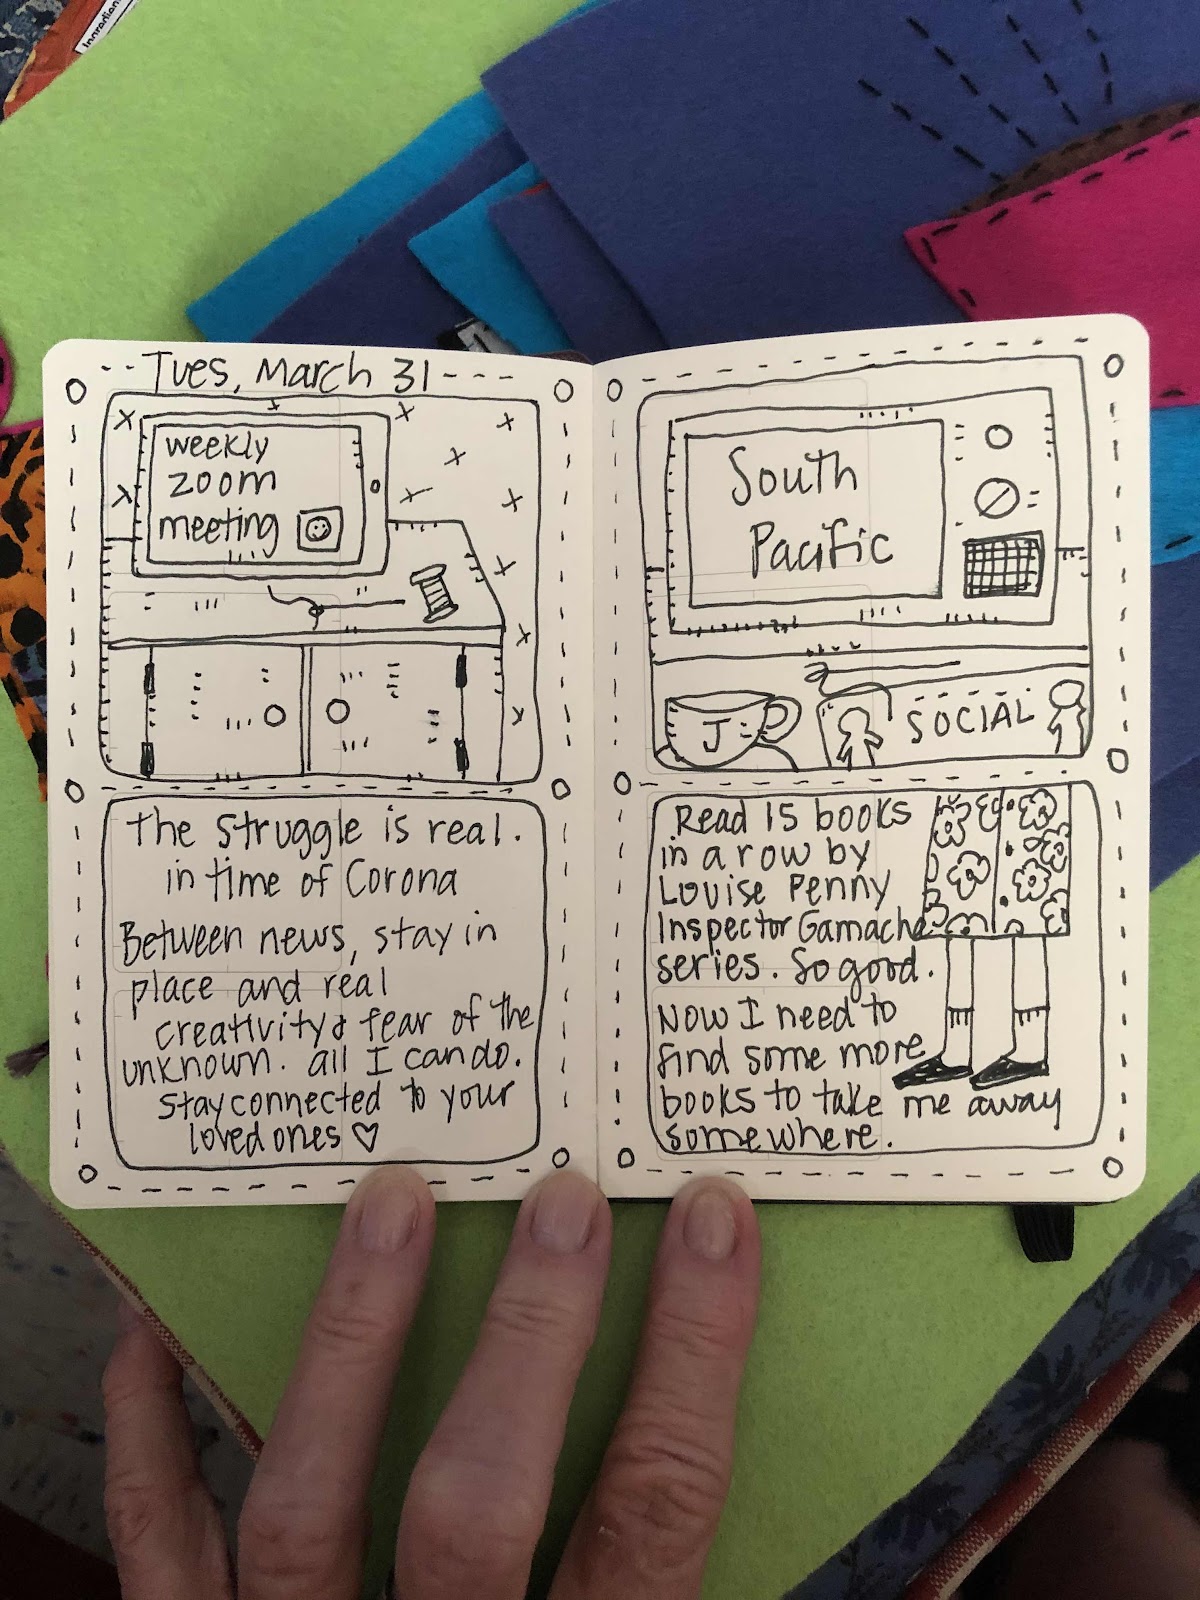 Ingredien
Tues, March 31
weekly
zoom
meeting
The struggle is real.
in time of Corona
Between news, stay in
place and real
creativity & fear of the
unknown. all I can do.
stay connected to your
loved ones ♡
South
Pacific
J
SOCIAL
Read 15 books
in a row by
Louise Penny
Inspector Gamache
series. So good.
Now I need to
find some more
books to take me away
somewhere.